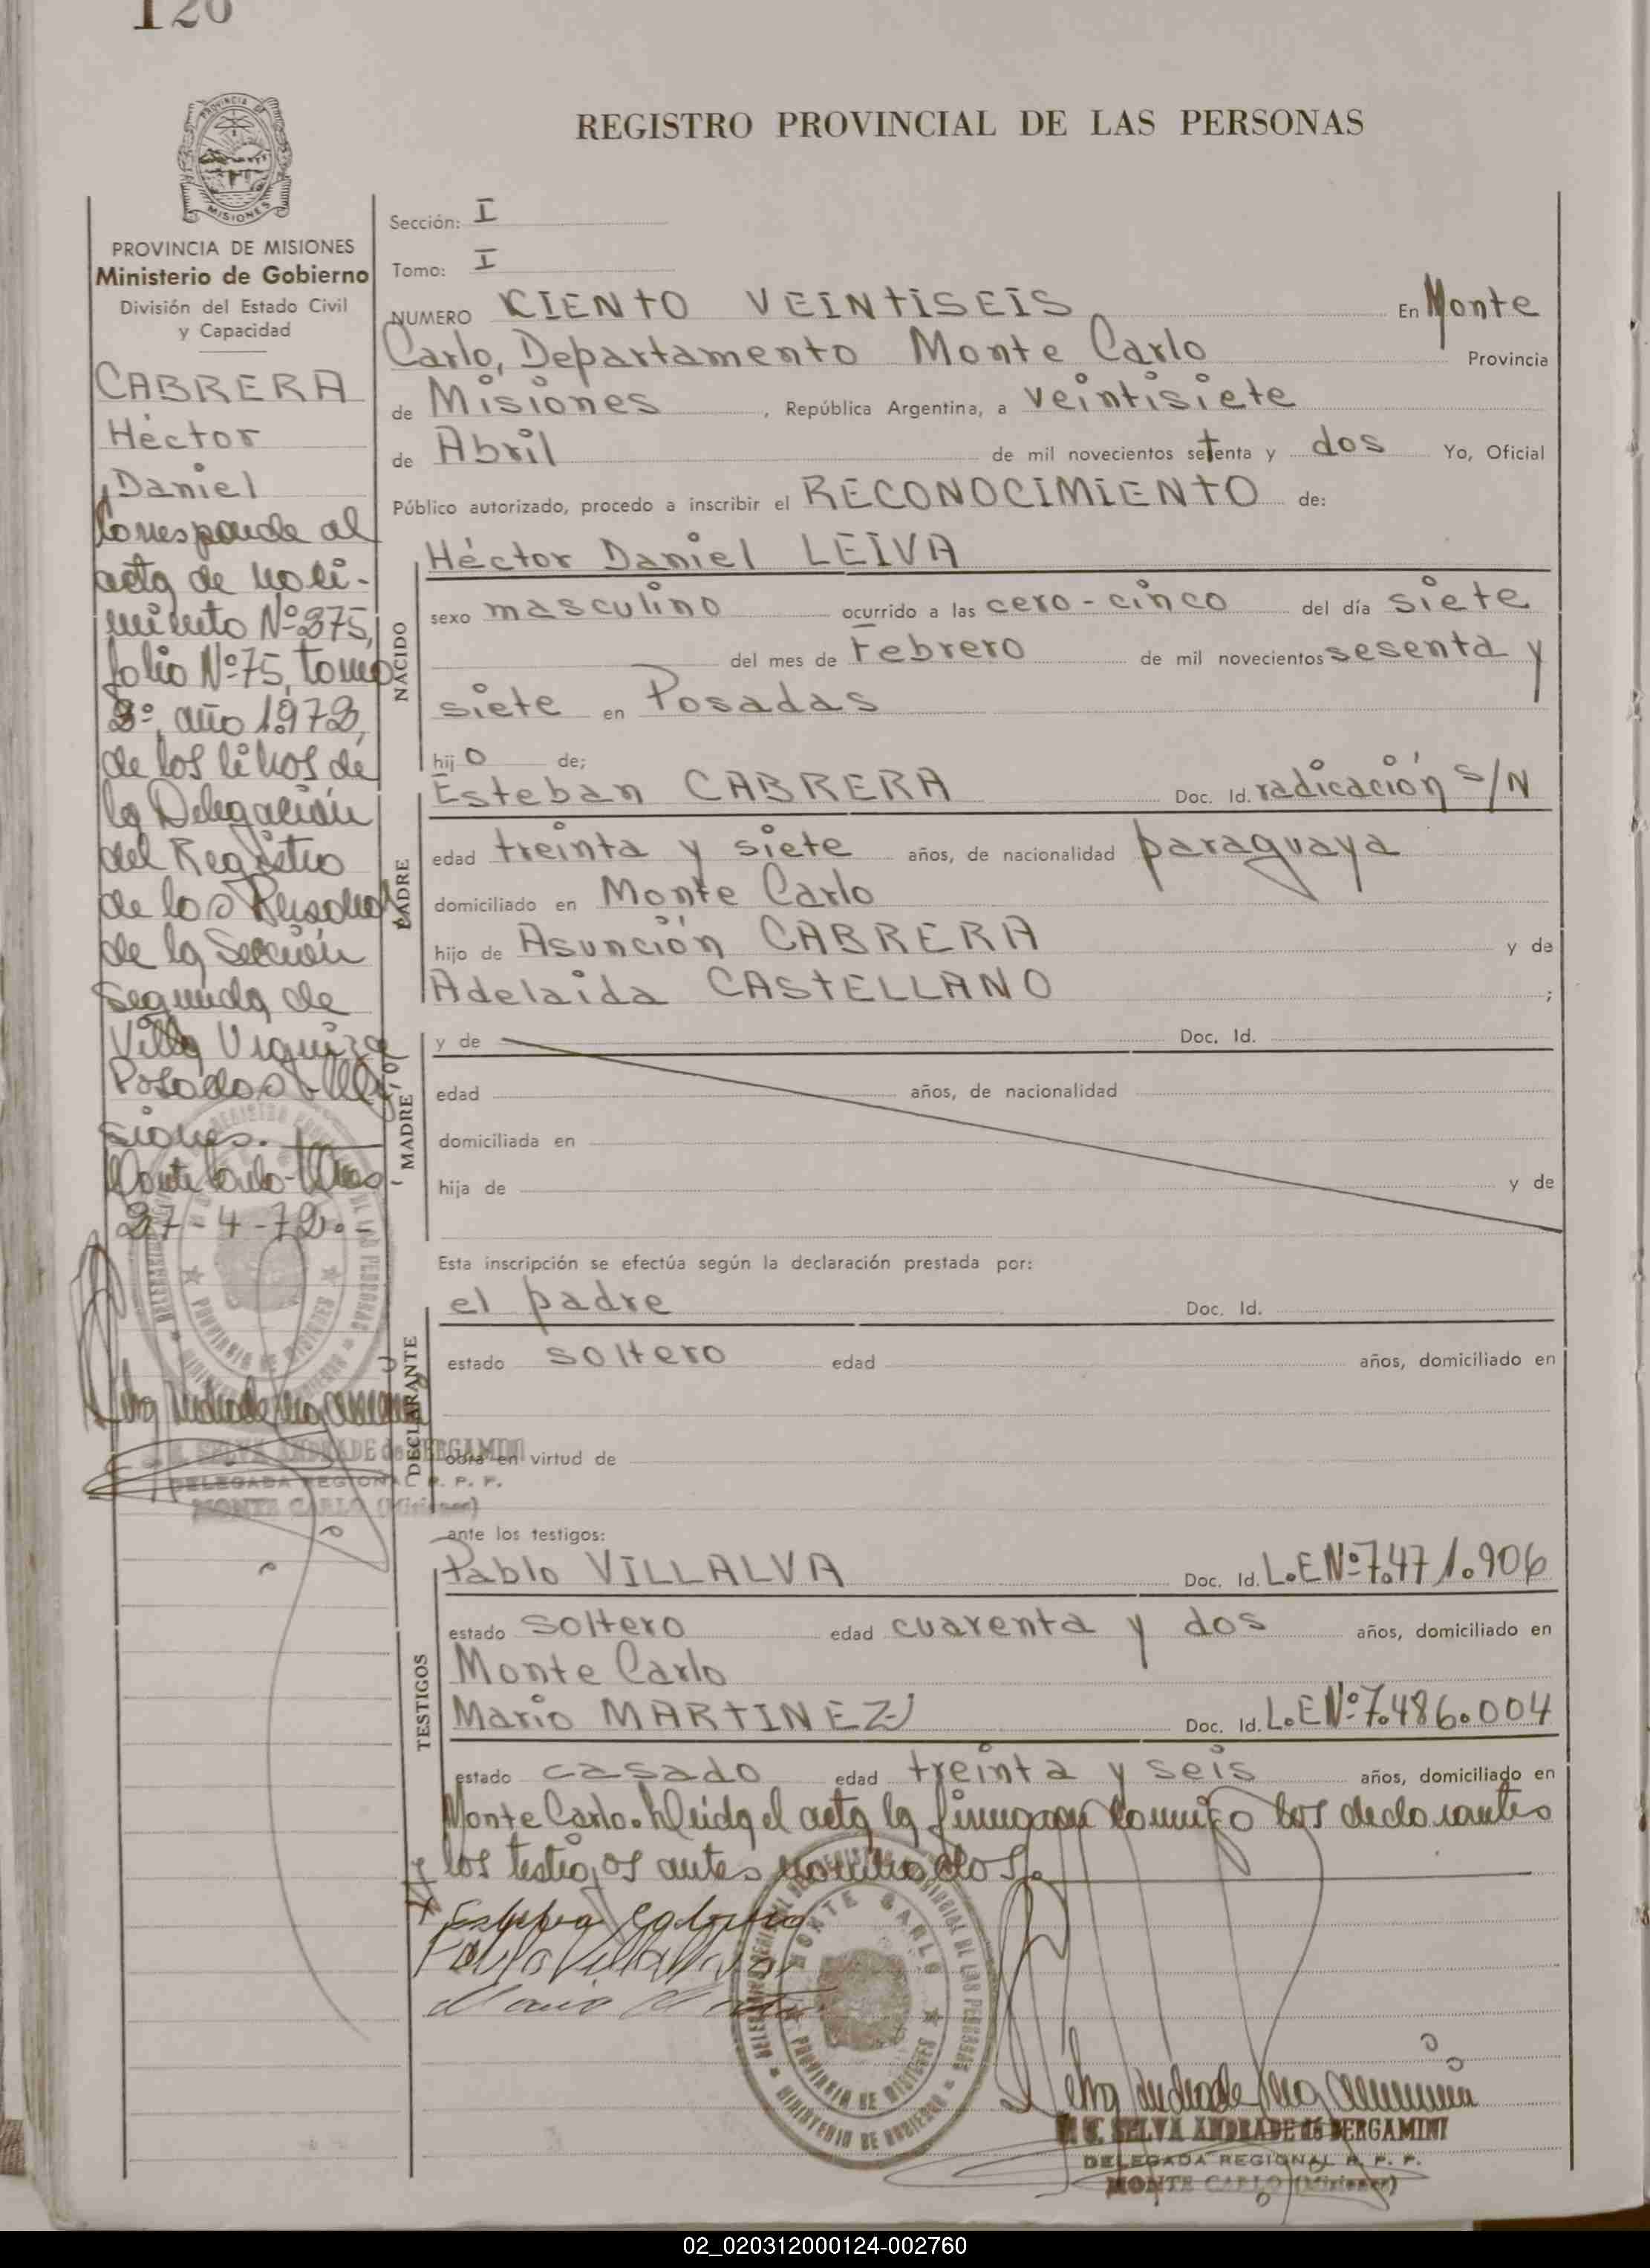 126
REGISTRO PROVINCIAL DE LAS PERSONAS
PROVINCIA DE MISIONES
Ministerio de Gobierno
División del Estado Civil
y Capacidad
CABRERA
Héctor
Daniel
Corresponde al
acta de naci-
miento Nº 375,
folio Nº 75, tomo
2º, año 1972,
de los libros de
la Delegación
del Registro
de las Personas
de la Sección
Segunda de
Villa Urquiza
Posadas - Mi
siones.
Monte Carlo - Mnes
27-4-72.-
SELVA ANDRADE de BERGAMINI
DELEGADA REGIONAL R. P. P.
MONTE CARLO (Misiones)
Sección: I
Tomo: I
NUMERO CIENTO VEINTISEIS En Monte
Carlo, Departamento Monte Carlo Provincia
de Misiones, República Argentina, a veintisiete
de Abril de mil novecientos setenta y dos Yo, Oficial
Público autorizado, procedo a inscribir el RECONOCIMIENTO de:
NACIDO
Héctor Daniel LEIVA
sexo masculino ocurrido a las cero-cinco del día siete
del mes de Febrero de mil novecientos sesenta y
siete en Posadas
hijo de;
PADRE
Esteban CABRERA Doc. Id. radicación S/N
edad treinta y siete años, de nacionalidad paraguaya
domiciliado en Monte Carlo
hijo de Asunción CABRERA y de
Adelaida CASTELLANO ;
MADRE
y de Doc. Id.
edad años, de nacionalidad
domiciliada en
hija de y de
Esta inscripción se efectúa según la declaración prestada por:
DECLARANTE
el padre Doc. Id.
estado soltero edad años, domiciliado en
obra en virtud de
ante los testigos:
TESTIGOS
Pablo VILLALVA Doc. Id. L.E Nº 7.471.906
estado soltero edad cuarenta y dos años, domiciliado en
Monte Carlo
Mario MARTINEZ Doc. Id. L.E Nº 7.486.004
estado casado edad treinta y seis años, domiciliado en
Monte Carlo. Leida el acta la firman conmigo los declarantes
y los testigos antes nombrados.
Esteban Cabrera
Pablo Villalva
MONTE CARLO
PROVINCIA DE MISIONES
MINISTERIO DE GOBIERNO
SELVA ANDRADE de BERGAMINI
DELEGADA REGIONAL R. P. P.
MONTE CARLO (Misiones)
02_020312000124-002760